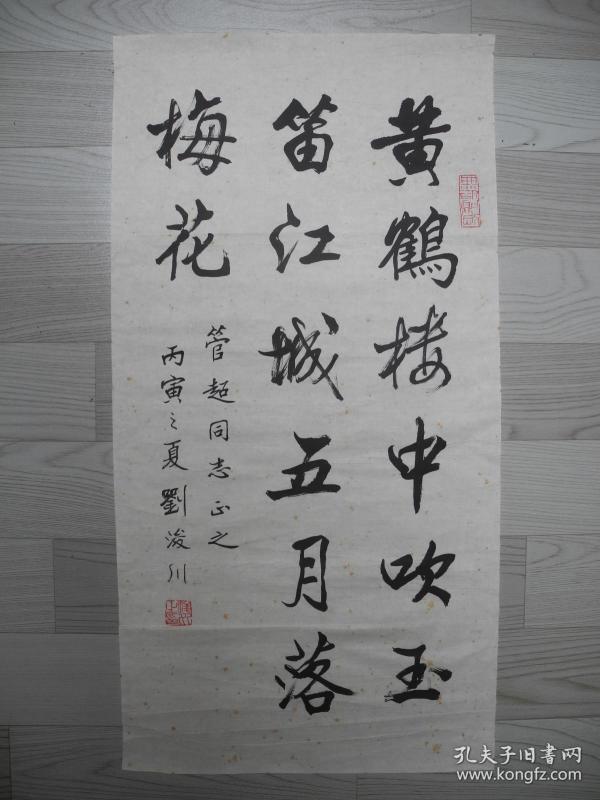 黄鹤楼中吹玉
笛江城五月落
梅花
管超同志正之
丙寅之夏劉浚川
孔夫子旧书网
www.kongfz.com